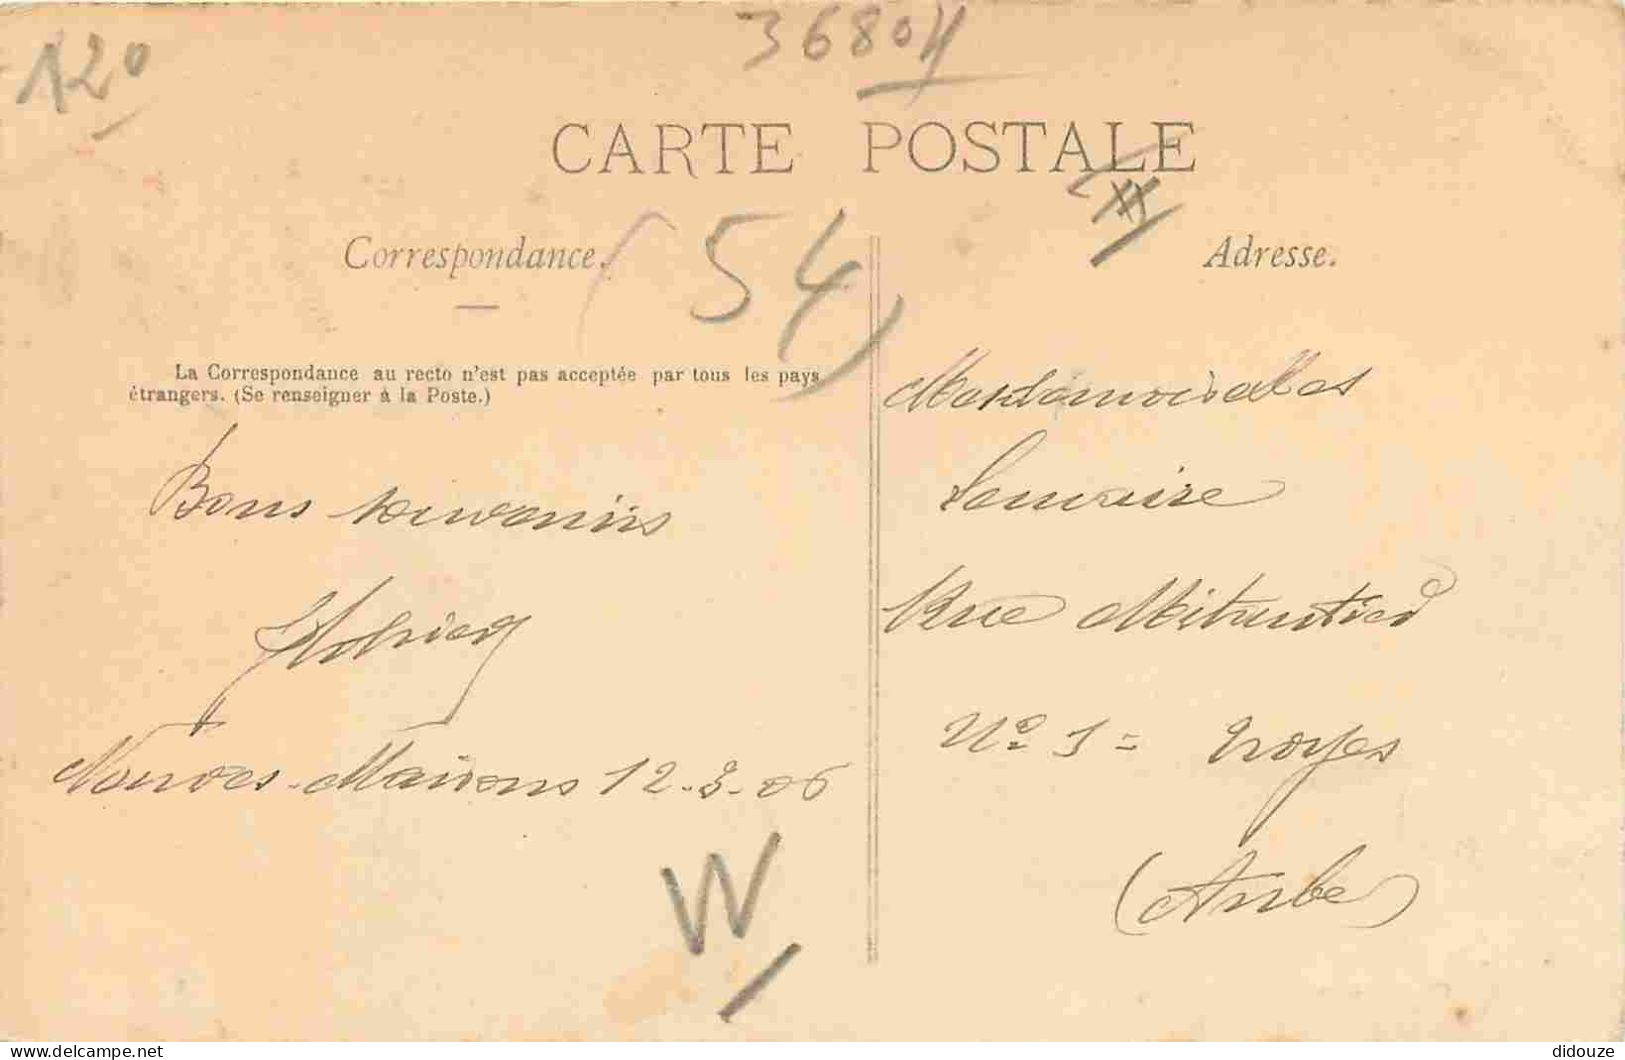 120
36804
CARTE POSTALE
Correspondance.
(54)
Adresse.
La Correspondance au recto n'est pas acceptée par tous les pays
étrangers. (Se renseigner à la Poste.)
Mesdemoiselles
Lemaire
Bons souvenirs
Rue
Nº 1 = Troyes
Nouves-Maisons 12-3-06
(Aube)
W
delcampe.net
didouze